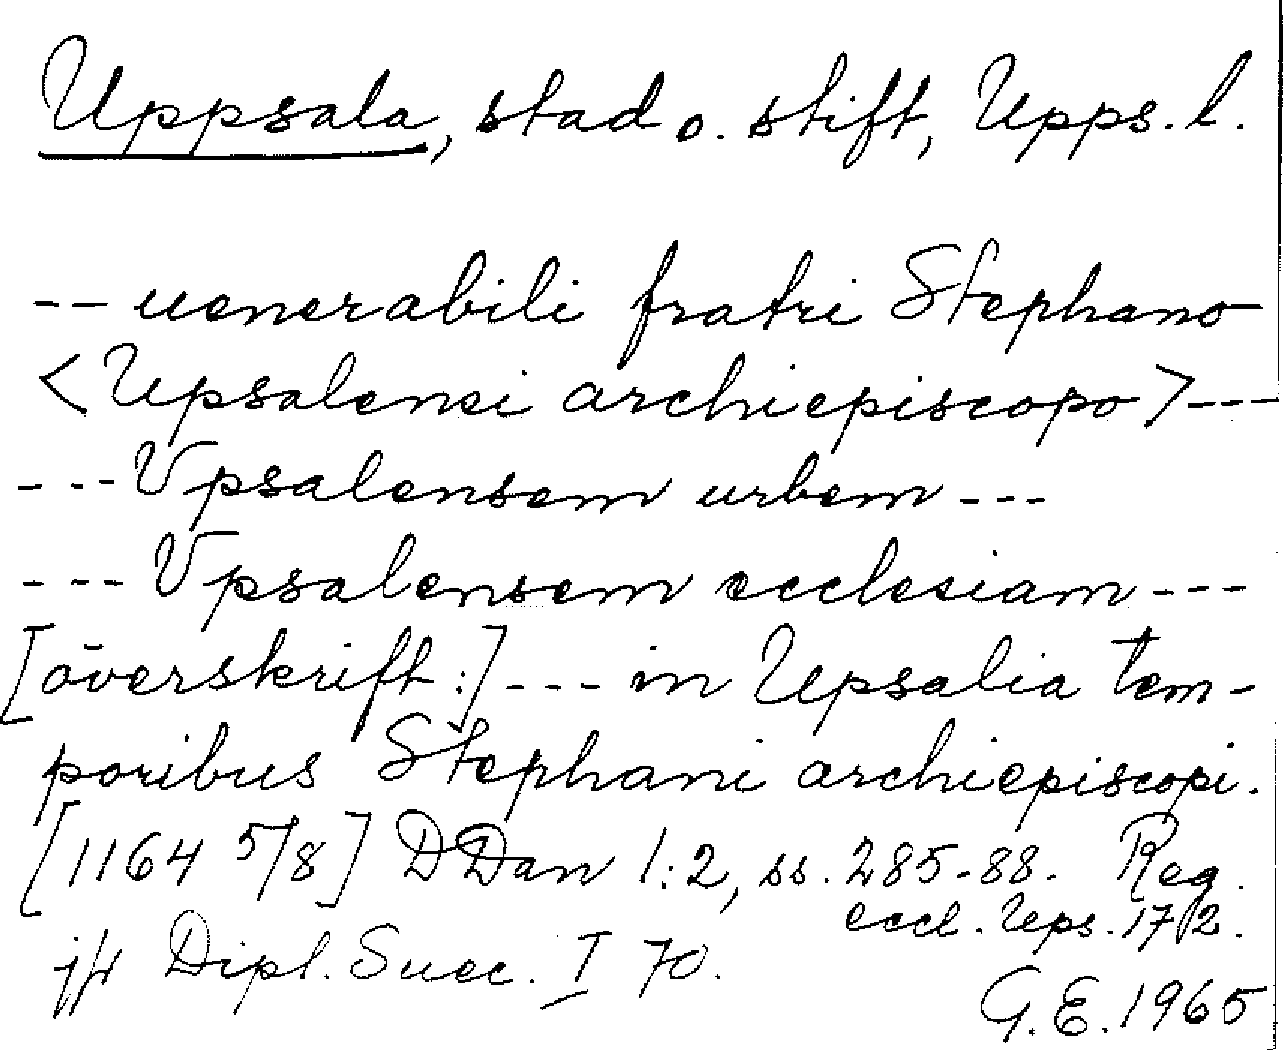 Uppsala, stad o. stift, Upps. l.
-- uenerabili fratri Stephano
<Upsalensi archiepiscopo> ---
--- Vpsalensem urbem ---
--- Vpsalensem ecclesiam ---
[överskrift:] --- in Upsalia tem-
poribus Stephani archiepiscopi.
[1164 5/8] DDan 1:2, ss. 285-88. Reg.
eccl. Ups. 172.
jfr Dipl. Suec. I 70.
G. E. 1965